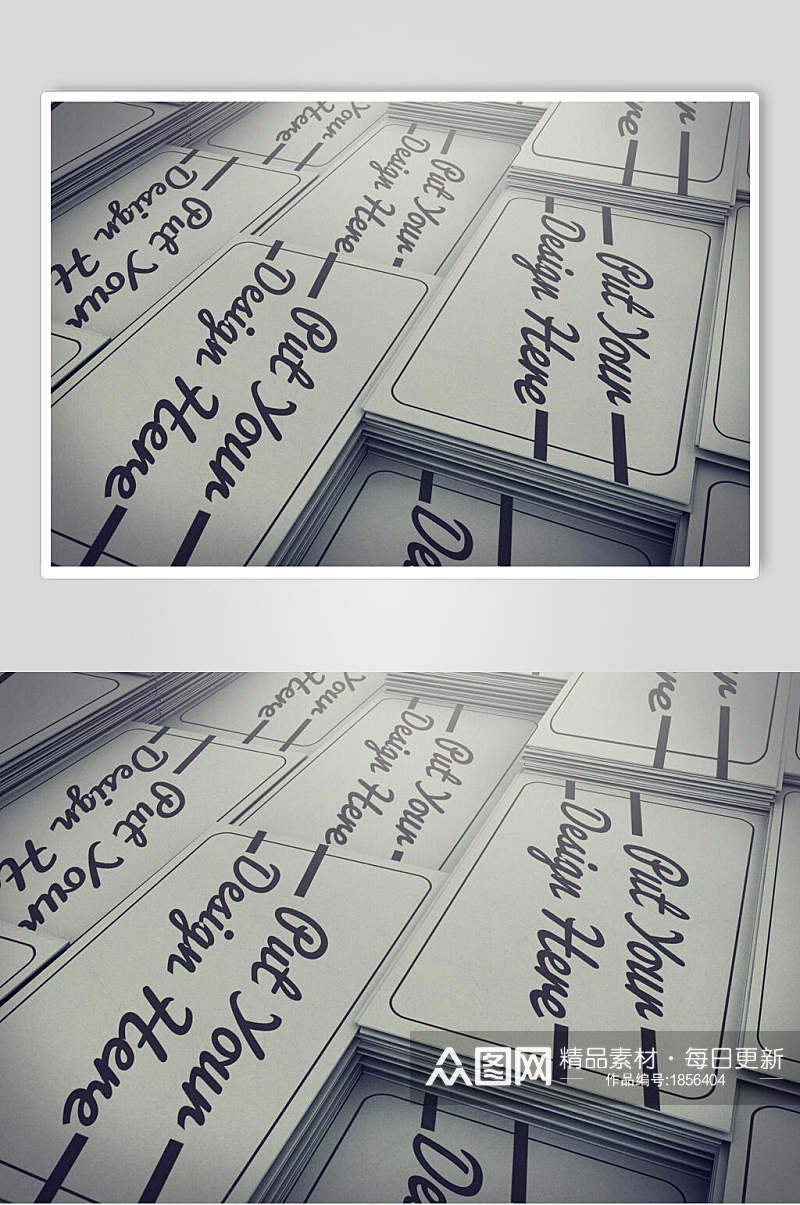 Your
Here
Put Your
Design Here
re
Put Your
Design He
Put Your
Design Here
Put Your
Design Here
De
Your
Here
Put Your
Design Here
re
Put Your
Design H
Put Your
Design Here
Put Your
Design Here
De
众图网 精品素材·每日更新
作品编号:1856404